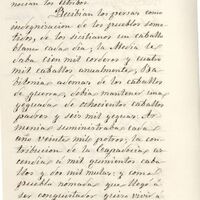 nocian los tributos.
Recibian los persas como
indemnizacion de los pueblos some-
tidos, de los sicilianos un caballo
blanco cada dia; la Media le
daba cien mil corderos y cuatro
mil caballos anualmente; Ba-
bilonia, ademas de los caballos
de guerra, debia mantener una
yeguada de ochocientos caballos
padres y seis mil yeguas. Ar-
menia suministraba cada
año veinte mil potros; la con-
tribucion de la Capadocia as-
cendia á mil quinientos caba-
llos y dos mil mulas; y como
pueblo nomada que llegó á
ser conquistador quiso vivir á